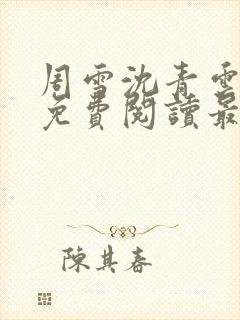 周雪沈青雲
免費閱讀最
陳其春